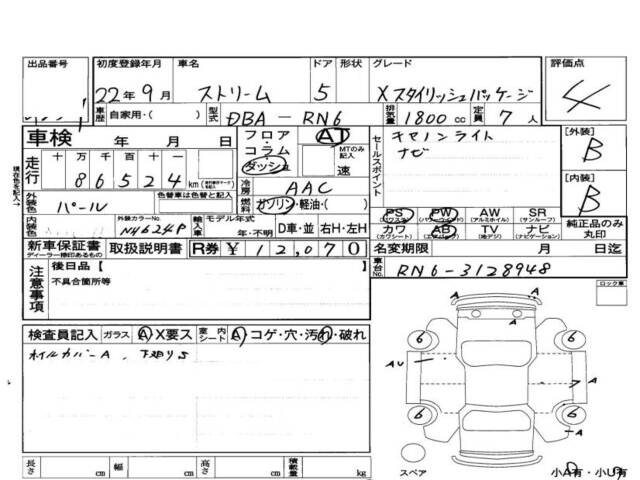 出品番号 初度登録年月 車名 ドア 形状 グレード 評価点
22年9月 ストリーム 5 Xスタイリッシュパッケージ 4
車歴 自家用・( ) 型式 DBA-RN6 排気量 1800cc 定員 7人
車検 年 月 日
フロア・コラム・ダッシュ AT MTのみ記入 速
セールスポイント キセノンライト
ナビ
[外装] B
[内装] B
走行 十 万 千 百 十 一
86524 km
冷房 AAC
現在色を記入→
外装色 パール 色替車は色替と記入 燃料 ガソリン・軽油・( )
PS PW AW SR
(パワステ) (パワーウィンド) (アルミホイル) (サンルーフ)
カワ AB TV ナビ
(カワシート) (エアバッグ) (地デジ) (ナビゲーション)
純正品のみ丸印
内装色 外装カラーNo. NH624P 輸入車 モデル年式 年・不明 D車・並 右H・左H
新車保証書 取扱説明書 R券 ¥12,070
ディーラー捺印あるもの
名変期限 月 日迄
車台No. RN6-3128948
注意事項 後日品【 】
不具合箇所等
ロック車
検査員記入 ガラス A・X要ス 室内シート A・コゲ・穴・汚れ・破れ
ホイルカバーA、下廻りS
A A
6 6
AU A
7
6 6
A
スペア 小A有・小U有
長さ cm 幅 cm 高さ cm 積載量 kg